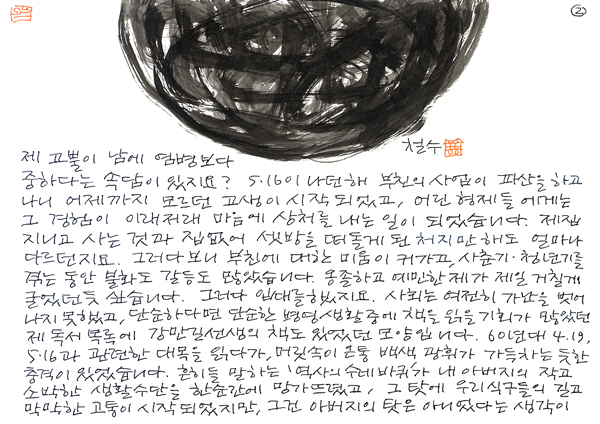 ②
철수
제 고뿔이 남에 열병보다
중하다는 속담이 있지요? 5·16이 나던해 부친의 사업이 파산을 하고
나니 어제까지 모르던 고생이 시작되었고, 어린 형제들에게는
그 경험이 이래저래 마음에 상처를 내는 일이 되었습니다. 제집
지니고 사는 것과 집없어 셋방을 떠돌게 된 처지만 해도 얼마나
다르던지요. 그러다보니 부친에 대한 미움이 커가고, 사춘기·청년기를
겪는 동안 불화도 갈등도 많았습니다. 옹졸하고 예민한 제가 제일 거칠게
굴었던 듯 싶습니다. 그러다 입대를 했지요. 사회는 여전히 가난을 벗어
나지 못했고, 단순하다면 단순한 병영생활중에 책을 읽을 기회가 많았던
제 독서 목록에 강만길선생의 책도 있었던 모양입니다. 60년대 4.19,
5·16과 관련한 대목을 읽다가, 머릿속이 온통 백색 광휘가 가득하는 듯한
충격이 있었습니다. 흔히들 말하는 '역사의 수레바퀴'가 내 아버지의 작고
소박한 생활수단을 한순간에 망가뜨렸고, 그 탓에 우리식구들의 길고
막막한 고통이 시작되었지만, 그건 아버지의 탓은 아니었다는 생각이